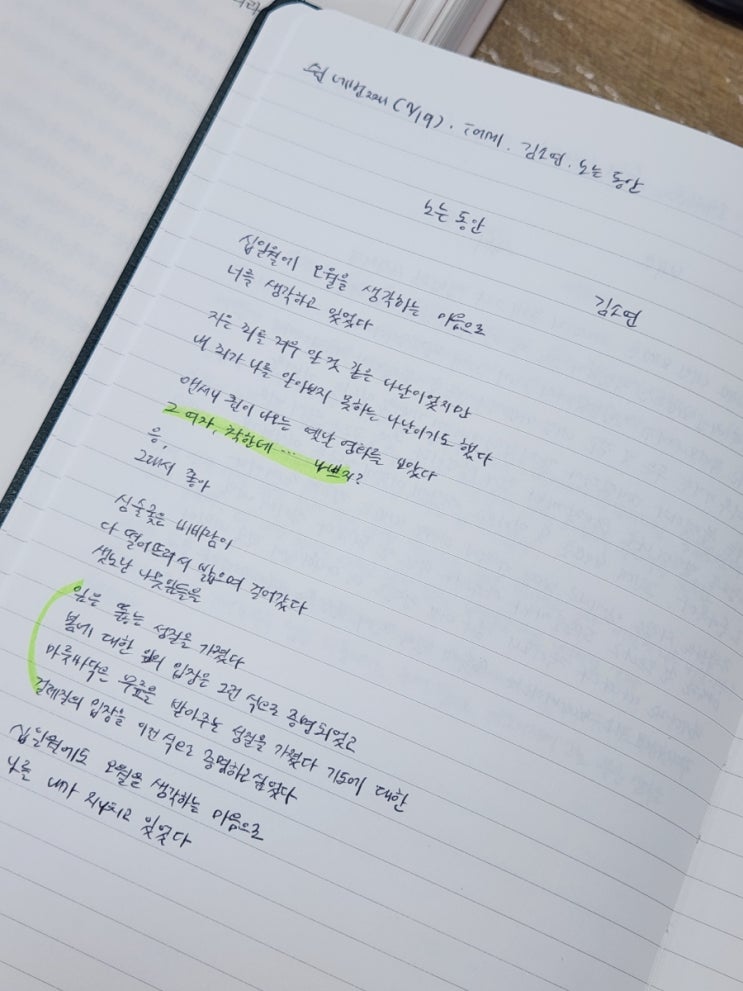 쉼 네번째 (7/19). 김소연. 노는 동안
노는 동안
김소연
십일월에 오월을 생각하는 마음으로
너를 생각하고 있었다
죄를 겨우 알 것 같은 나날이었지만
내 죄가 나를 알아보지 못하는 나날이기도 했다
앤서니 퀸이 나오는 옛날 영화를 보았다
그 여자, 착한데… 나쁘지?
응,
그래서 좋아
심술궂은 비바람이
다 떨어뜨려서 밟으며 걸어갔다
샛노란 나뭇잎들을
잎은 뚫는 성질을 가졌다
봄에 대한 잎의 입장은 그런 식으로 증명되었고
마룻바닥은 무릎을 받아주는 성질을 가졌다 기도에 대한
걸레질의 입장을 이런 식으로 증명하고 싶었다
십일월에도 오월을 생각하는 마음으로
나를 내가 지나치고 있었다